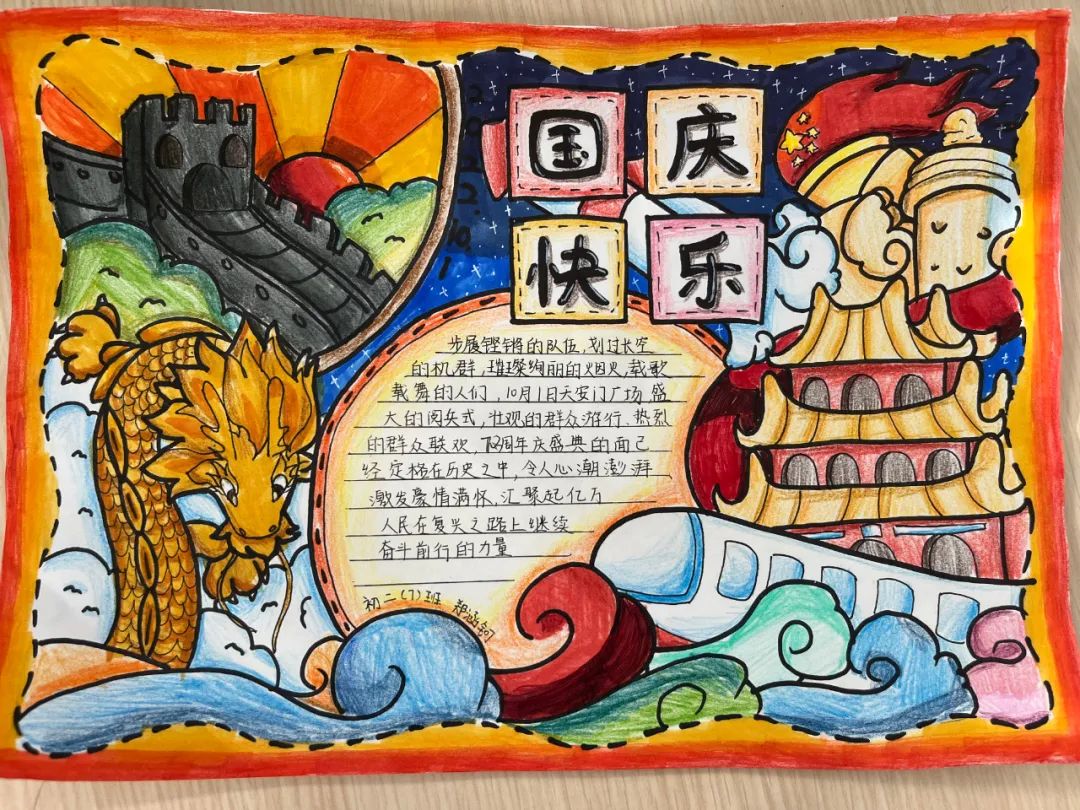 国庆
快乐
2022.10.1
步履铿锵的队伍,划过长空
的机群,璀璨绚丽的烟火,载歌
载舞的人们,10月1日天安门广场盛
大的阅兵式,壮观的群众游行、热烈
的群众联欢,72周年庆盛典的画面已
经定格在历史之中,令人心潮澎湃
激发豪情满怀,汇聚起亿万
人民在复兴之路上继续
奋斗前行的力量
初二(7)班